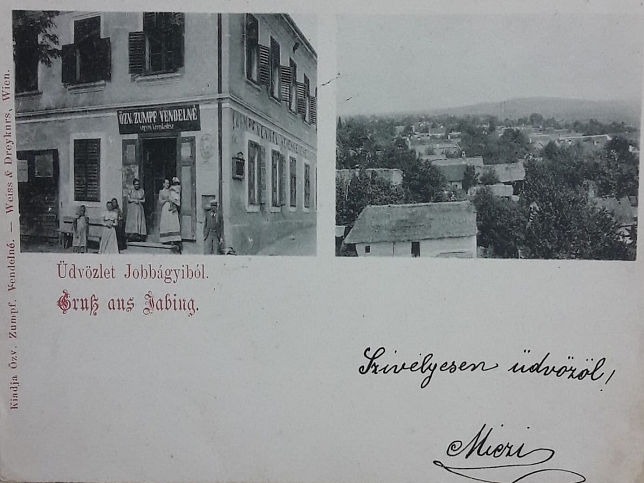 ÖZV. ZUMPF VENDELNÉ
Üdvözlet Jobbágyiból.
Gruß aus Jabing.
Szivélyesen üdvözöl!
Miczi
Kiadja Özv. Zumpf, Vendelné. — Weiss & Dreykurs, Wien.